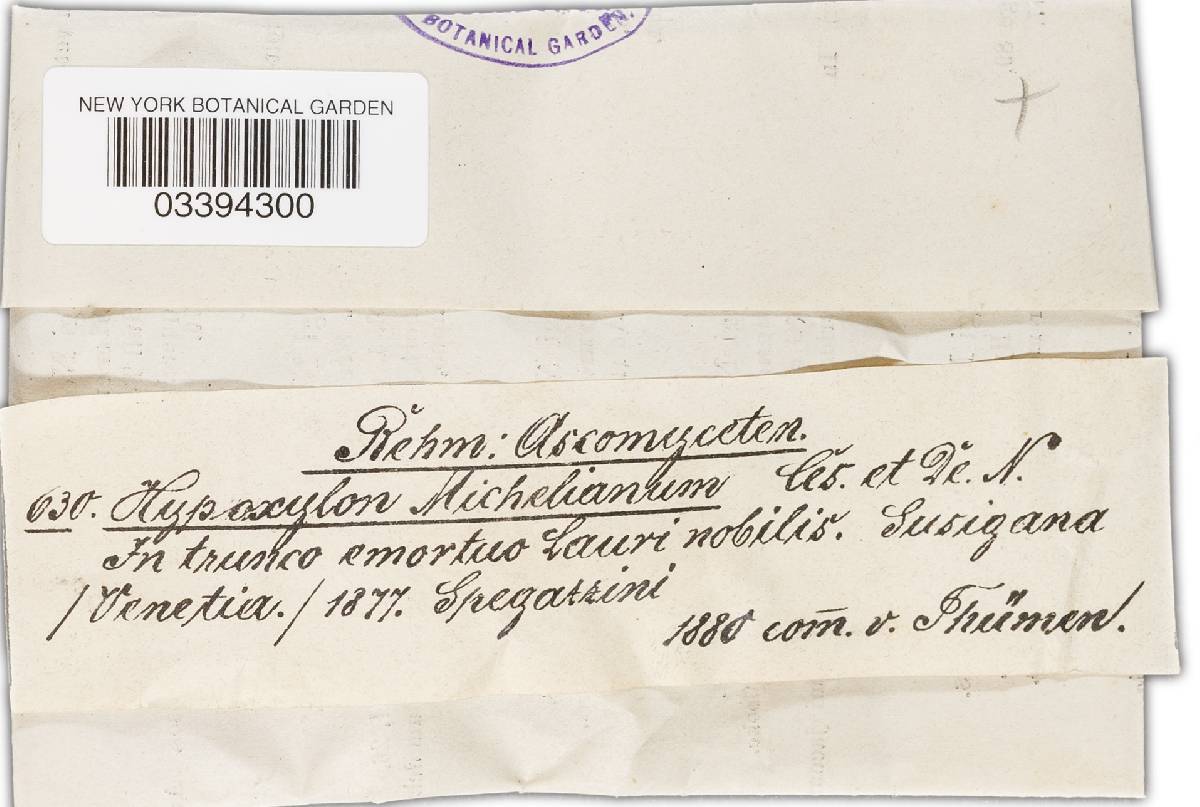 BOTANICAL GARDEN.
NEW YORK BOTANICAL GARDEN
03394300
Rehm: Ascomyceten.
630. Hypoxylon Michelianum Ces. et De. N.
In trunco emortuo Lauri nobilis. Susigana
/Venetia./ 1877. Spegazzini
1880 com̅. v. Thümen/.